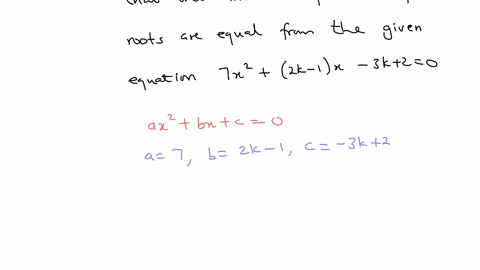 roots are equal from the given
equation 7x² + (2k-1)x - 3k+2=0
ax² + bx + c = 0
a= 7, b= 2k-1, c = -3k+2